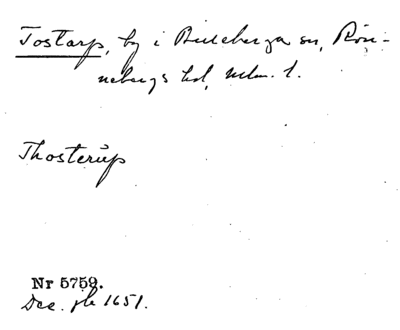 Tostarp, by i Billeberga sn, Rön-
nebergs hd, Mlm. l.
Thosterup
Nr 5759.
Dec. jb 1651.